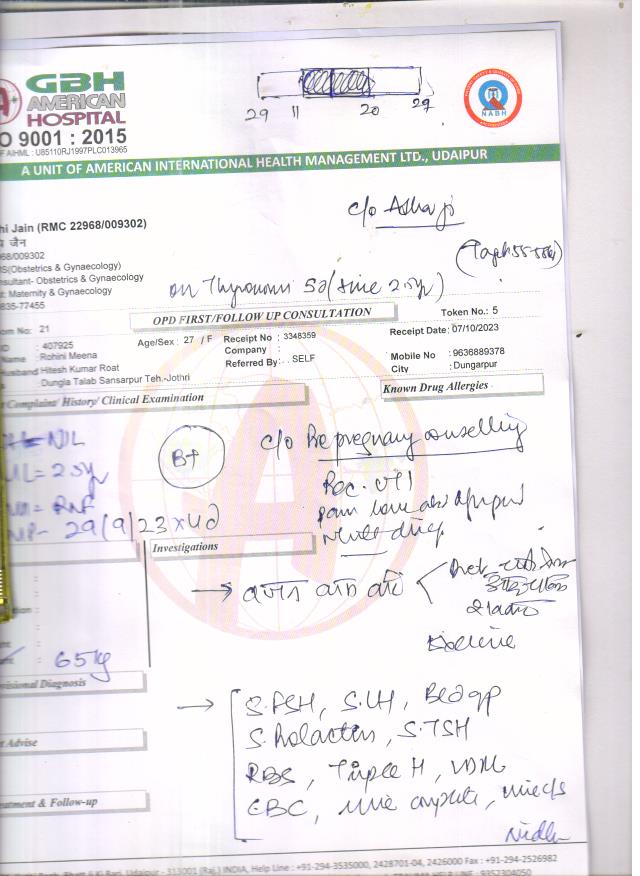 GBH
AMERICAN
HOSPITAL
O 9001 : 2015
F AIHML : U85110RJ1997PLC013965
29 11 20 27
NABH
A UNIT OF AMERICAN INTERNATIONAL HEALTH MANAGEMENT LTD., UDAIPUR
c/o Asha ji
hi Jain (RMC 22968/009302)
जैन
68/009302
S(Obstetrics & Gynaecology)
nsultant- Obstetrics & Gynaecology
t: Maternity & Gynaecology
835-77455
on Thyronorm 50 (since 2.5yr)
OPD FIRST/FOLLOW UP CONSULTATION
Token No.: 5
om No: 21
Receipt Date: 07/10/2023
ID : 407925
Age/Sex : 27 / F
Receipt No : 3348359
Company :
Name : Rohini Meena
Referred By : . . SELF
Mobile No : 9636889378
usband Hitesh Kumar Roat
City : Dungarpur
: Dungla Talab Sansarpur Teh.-Jothri
Complaint/ History/ Clinical Examination
Known Drug Allergies
NIL
ML = 2.5yr
B+
c/o Pre pregnancy counselling
Rec. UTI
29/9/23 x 4d
pain lower abd
white disc.
Investigations
→ वजन
65 kg
visional Diagnosis
→ S.FSH, S.LH, Bld gp
S.Prolactin, S.TSH
t Advise
RBS, Triple H, VDRL
CBC, urine complete, urine c/s
eatment & Follow-up
Nidhi
Udaipur - 313001 (Raj.) INDIA, Help Line : +91-294-3535000, 2428701-04, 2426000 Fax : +91-294-2526982